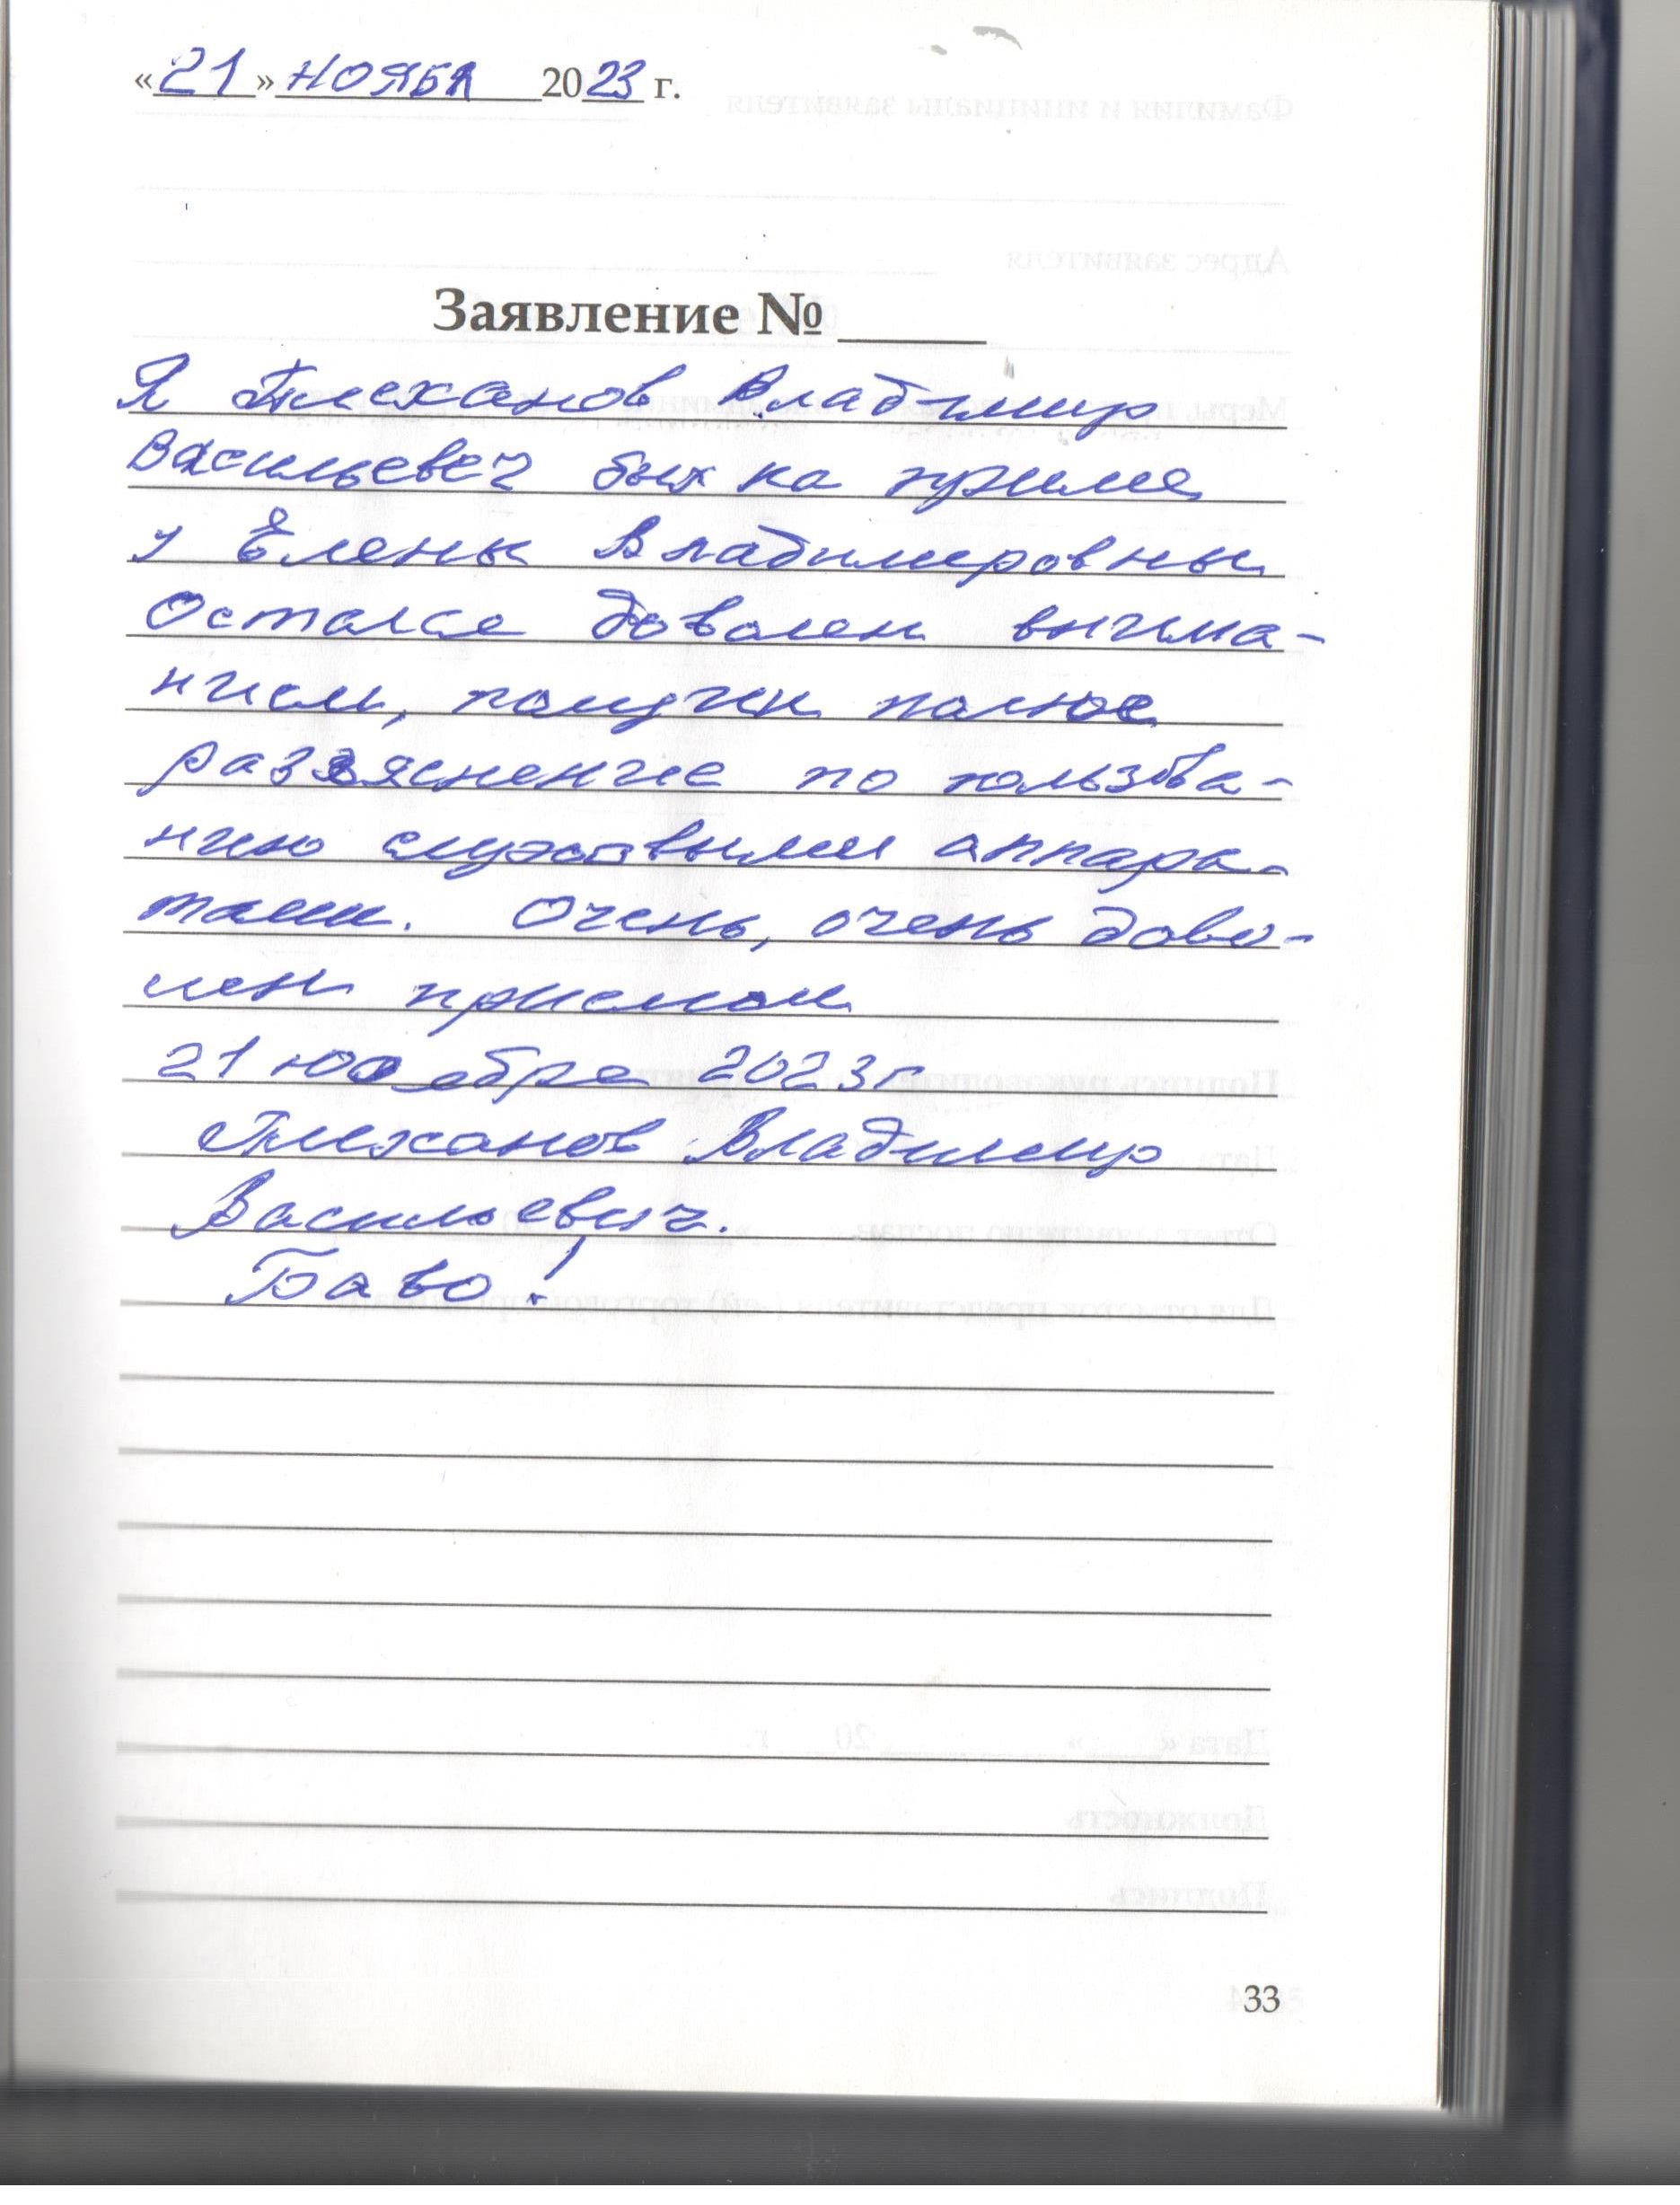 «21» НОЯБЯ 2023 г.
Заявление №
Я Плеханов Владимир
Васильевеч был на приеме
у Елены Владимировны
Остался доволен внима-
нием, получил полное
разъяснение по пользова-
нию слуховыми аппара-
тами. Очень, очень дово-
лен приемом
21 ноября 2023г
Плеханов Владимир
Васильевич.
Баво!
33